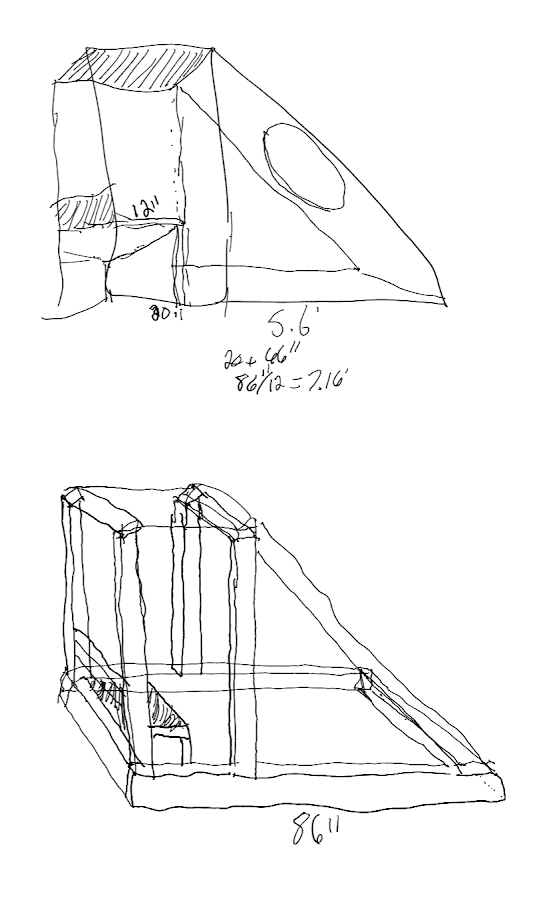 12"
20"
5.6'
20 + 66"
86"/12 = 7.16'
86"